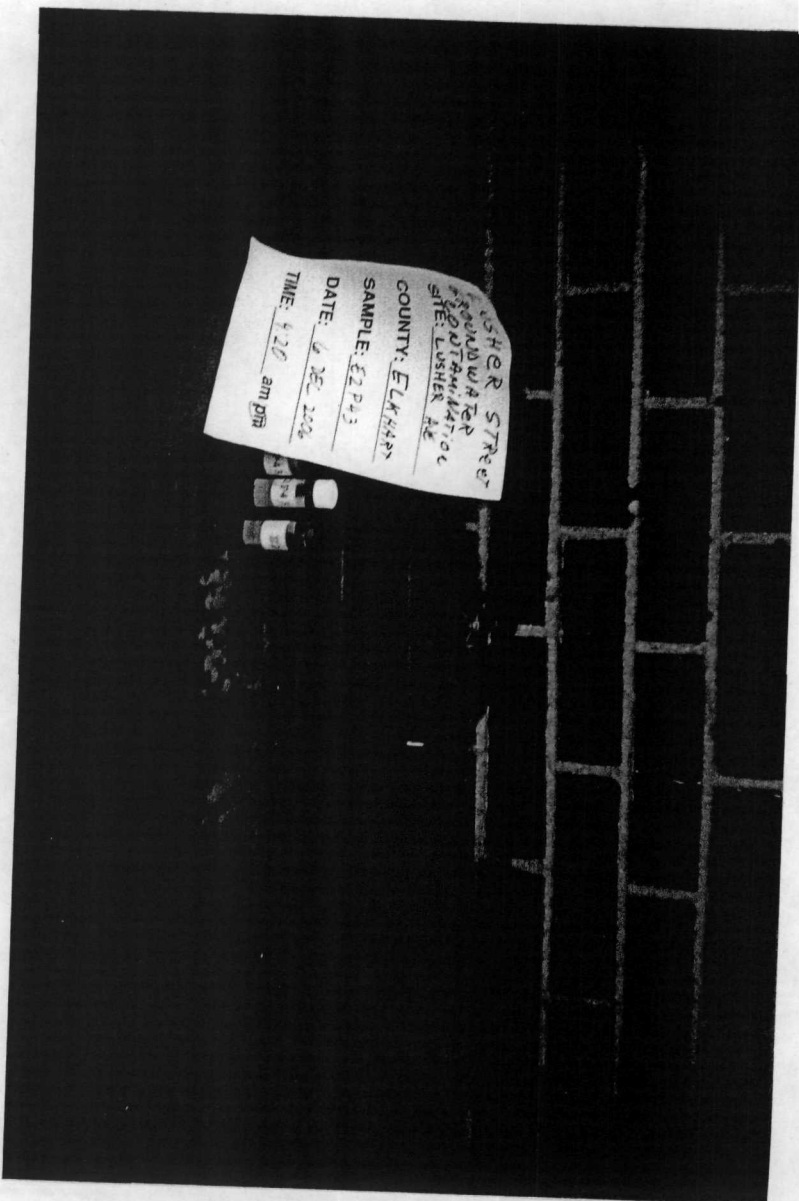 LUSHER STREET
GROUNDWATER
CONTAMINATION
SITE: LUSHER AVE
COUNTY: ELKHART
SAMPLE: E2P43
DATE: 6 DEC 2006
TIME: 4:20 am pm